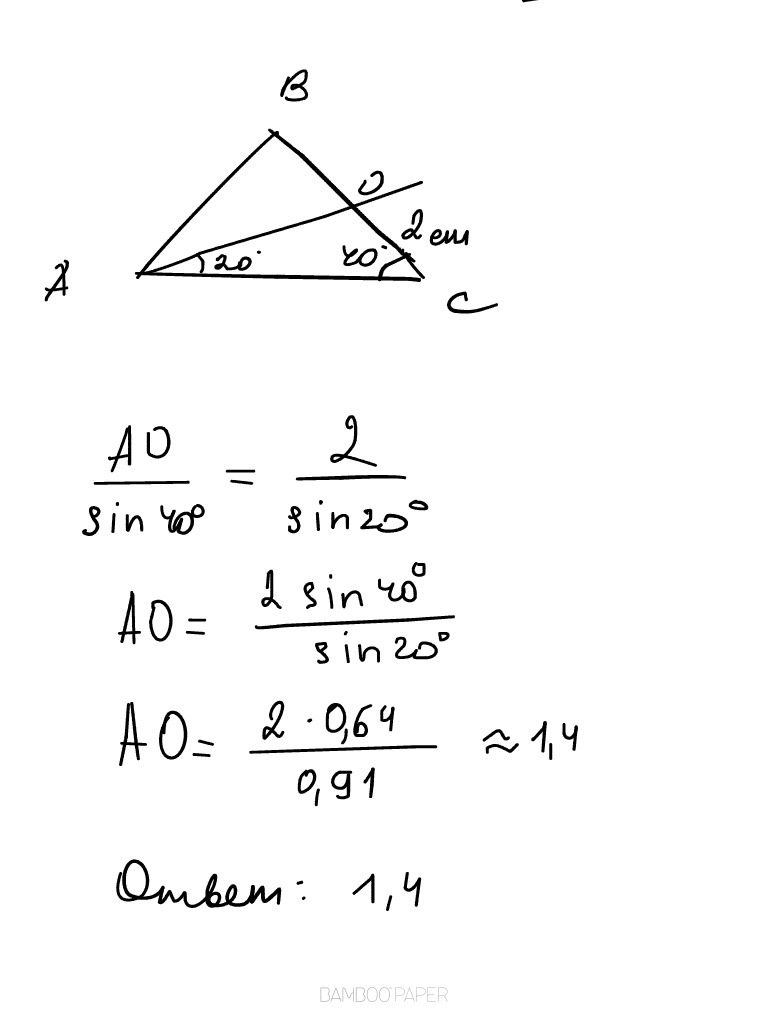 B
O
2 см
20°
40°
A
C
AO / sin 40° = 2 / sin 20°
AO = 2 sin 40° / sin 20°
AO = 2 · 0,64 / 0,91 ≈ 1,4
Ответ: 1,4
BAMBOO PAPER